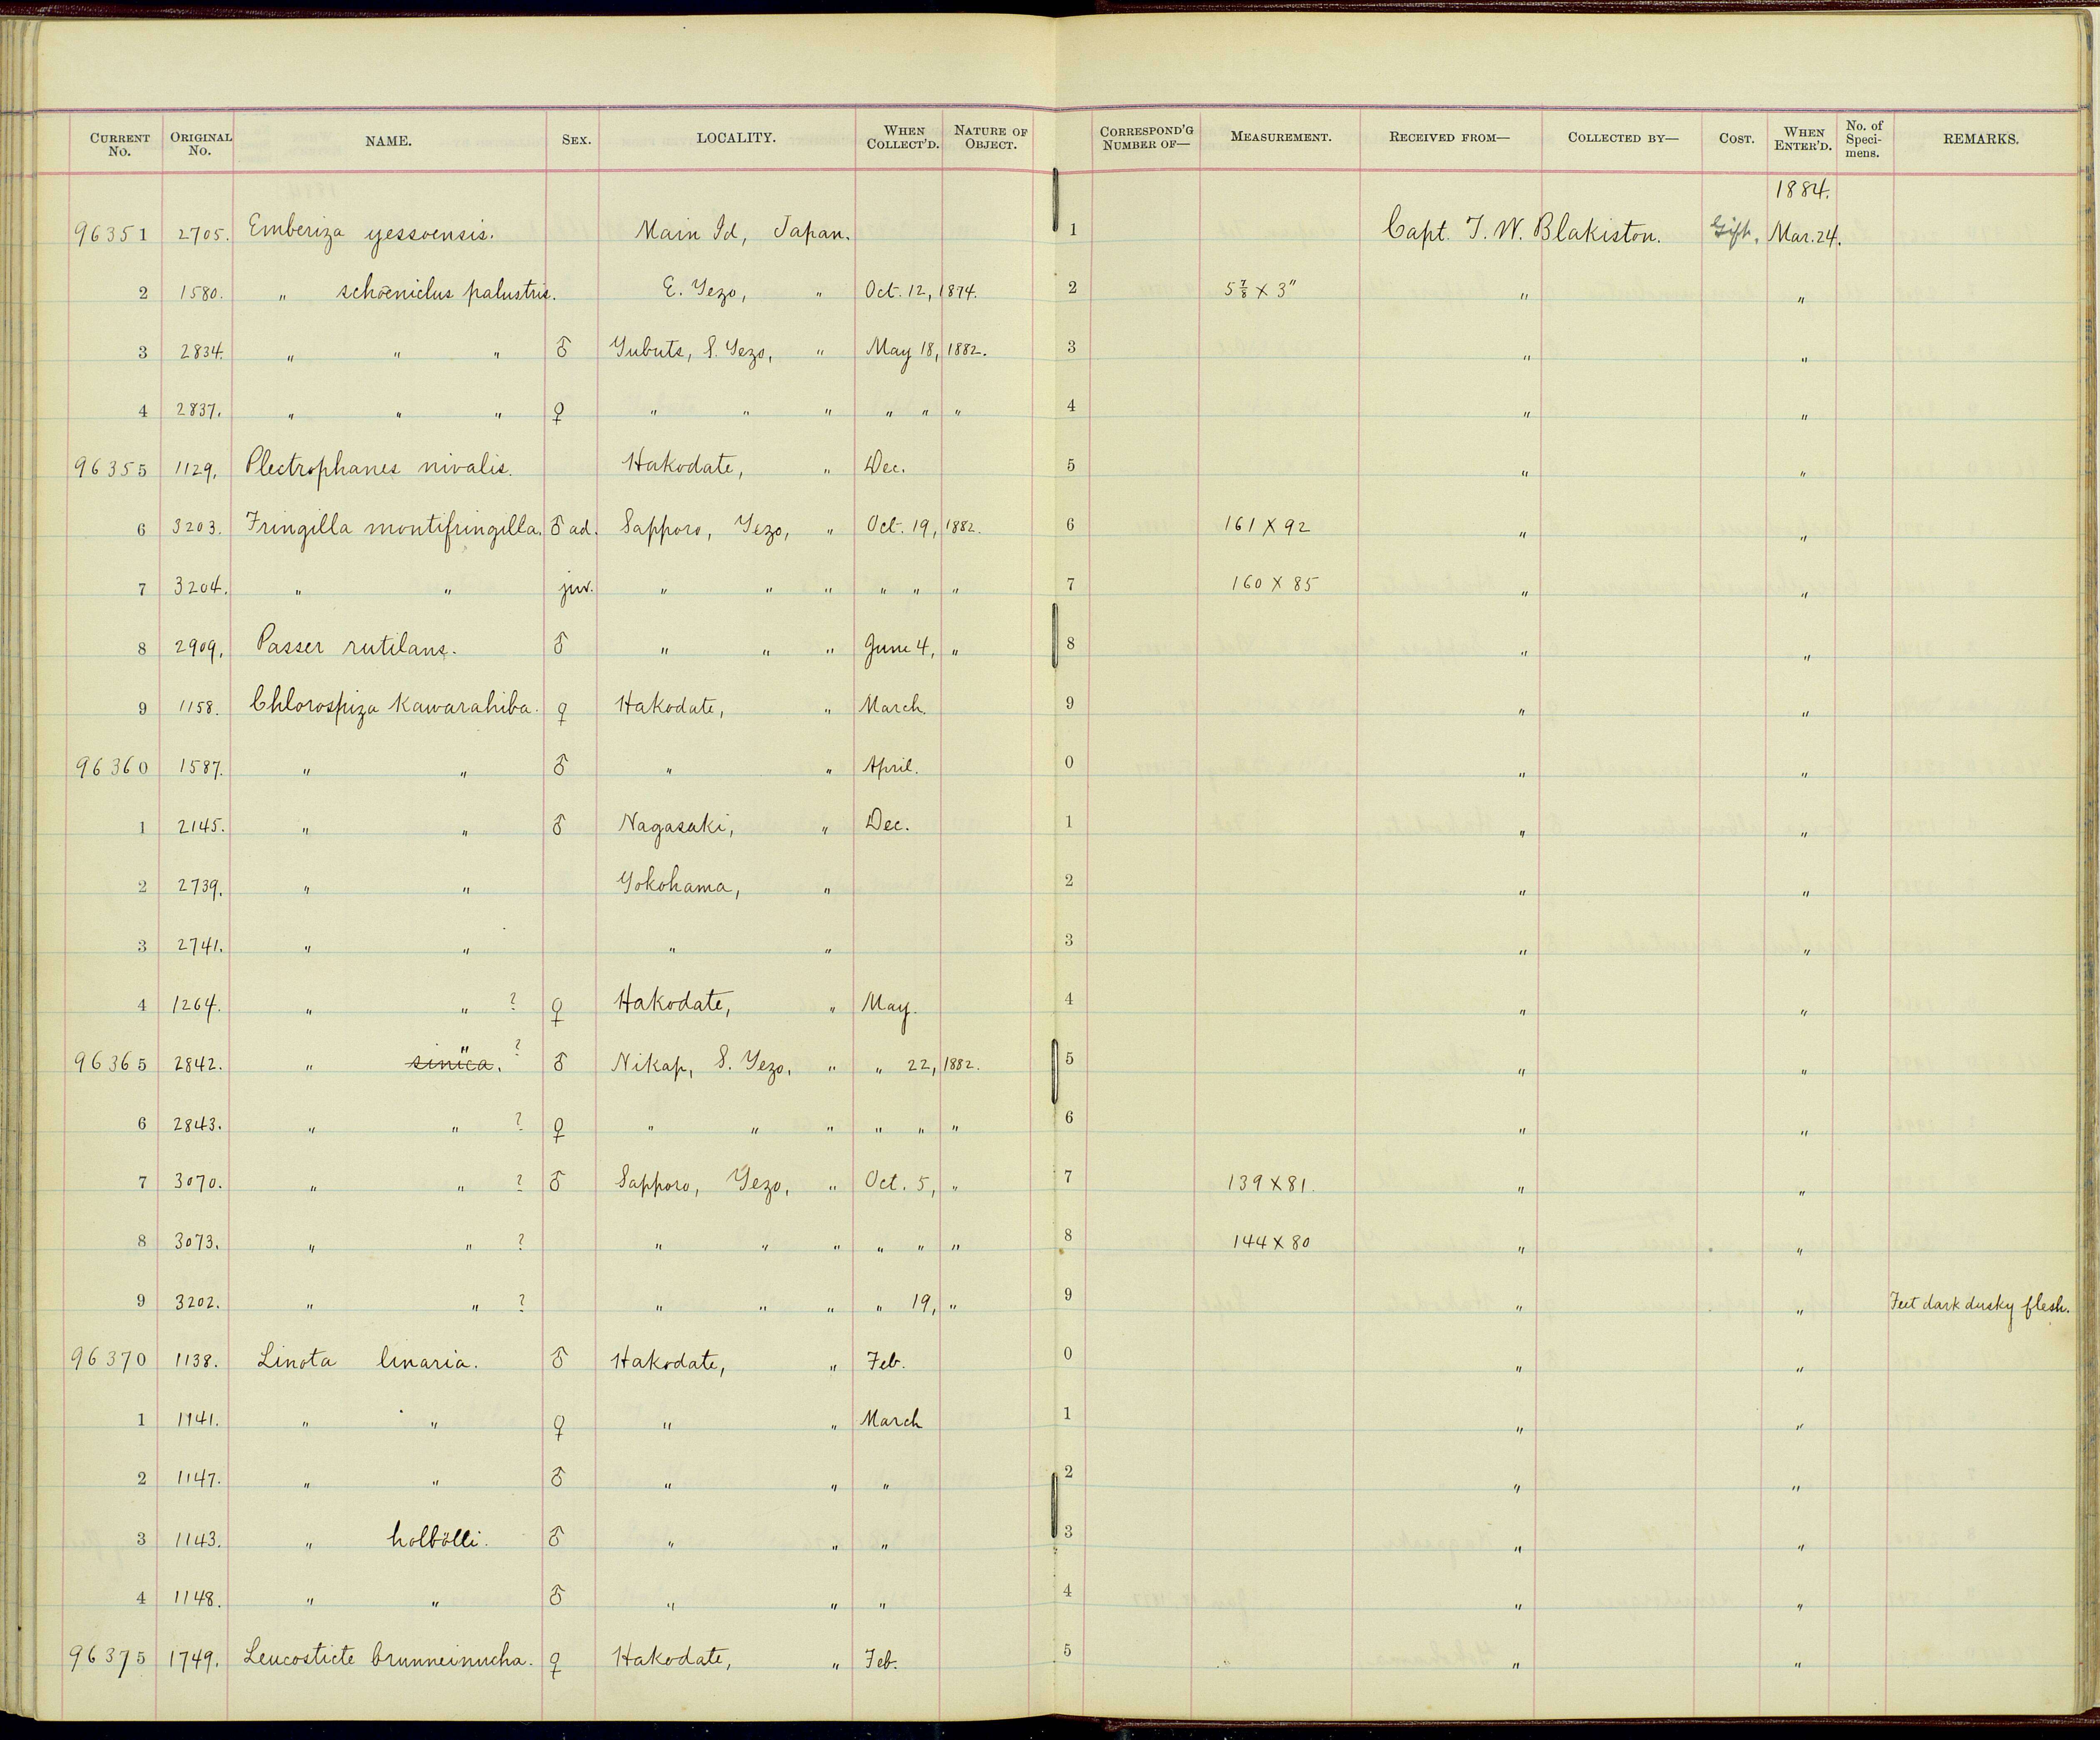 CURRENT No. ORIGINAL No. NAME. SEX. LOCALITY. WHEN COLLECT'D. NATURE OF OBJECT. CORRESPOND'G NUMBER OF— MEASUREMENT. RECEIVED FROM— COLLECTED BY— COST. WHEN ENTER'D. No. of Speci-mens. REMARKS.
1884.
96351 2705. Emberiza yessoensis. Main Id, Japan. 1 Capt. T. W. Blakiston. Gift. Mar. 24.
2 1580. " schœniclus palustris. E. Yezo, " Oct. 12, 1874. 2 5 7/8 × 3" " "
3 2834. " " " ♂ Yubuts, S. Yezo, " May 18, 1882. 3 " "
4 2837. " " " ♀ " " " " " " 4 " "
96355 1129. Plectrophanes nivalis. Hakodate, " Dec. 5 " "
6 3203. Fringilla montifringilla. ♂ ad. Sapporo, Yezo, " Oct. 19, 1882. 6 161 × 92 " "
7 3204. " " juv. " " " " " " 7 160 × 85 " "
8 2909. Passer rutilans. ♂ " " " June 4, " 8 " "
9 1158. Chlorospiza Kawarahiba. ♀ Hakodate, " March. 9 " "
96360 1587. " " ♂ " " April. 0 " "
1 2145. " " ♂ Nagasaki, " Dec. 1 " "
2 2739. " " Yokohama, " 2 " "
3 2741. " " " " 3 " "
4 1264. " " ? ♀ Hakodate, " May. 4 " "
96365 2842. " sinica. " ? ♂ Nikap, S. Yezo, " " 22, 1882. 5 " "
6 2843. " " ? ♀ " " " " " " 6 " "
7 3070. " " ? ♂ Sapporo, Yezo, " Oct. 5, " 7 139 × 81. " "
8 3073. " " ? " " " " " " 8 144 × 80 " "
9 3202. " " ? " " " " 19, " 9 " " Feet dark dusky flesh.
96370 1138. Linota linaria. ♂ Hakodate, " Feb. 0 " "
1 1141. " " ♀ " " March 1 " "
2 1147. " " ♂ " " " 2 " "
3 1143. " holbölli. ♂ " " " 3 " "
4 1148. " " ♂ " " " 4 " "
96375 1749. Leucosticte brunneinucha. ♀ Hakodate, " Feb. 5 " "